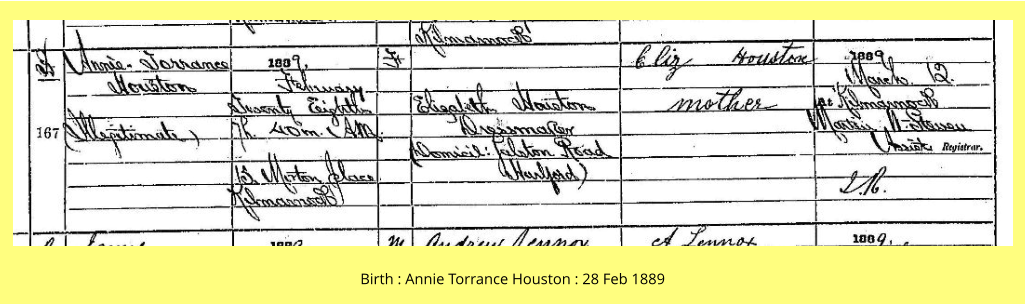 Kilmarnock
Annie Torrance
Houston
(Illegitimate)
167
1889,
February
Twenty Eighth
7h. 40m. A.M.
13 Morton Place
Kilmarnock
F
Elizabeth Houston
Dressmaker
(Domicil: Galston Road
Hurlford)
Eliz Houston
mother
1889,
March 12.
At Kilmarnock
Assist Registrar.
J.R.
1889
M
Andrew Lennox
A Lennox
1889,
Birth : Annie Torrance Houston : 28 Feb 1889